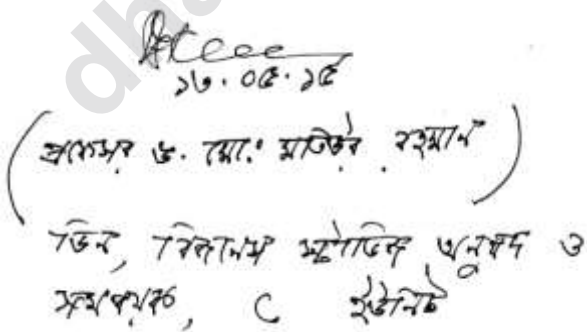 dha
১৬.০৫.১৫
(প্রফেসর ড. মো: মতিউর রহমান)
ডিন, বিজনেস স্টাডিজ অনুষদ ও
সমন্বয়ক, C ইউনিট